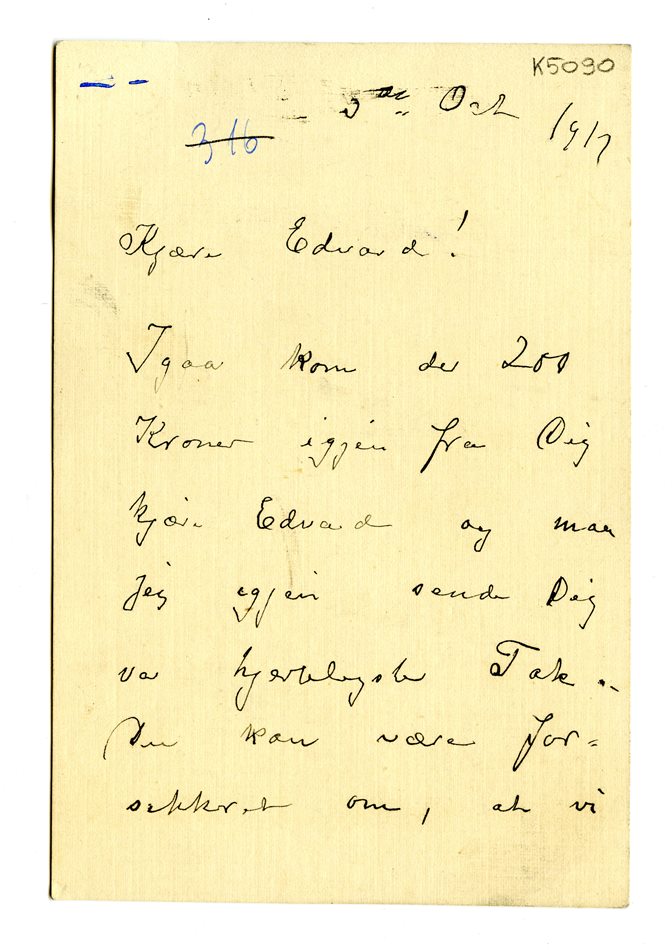 K5090
5te Oct 1917
316
Kjære Edvard!
Igaar kom der 200
Kroner igjen fra Dig
kjære Edvard og maa
jeg igjen sende Dig
vor hjerteligste Tak.
Du kan være for=
sikkret om, at vi